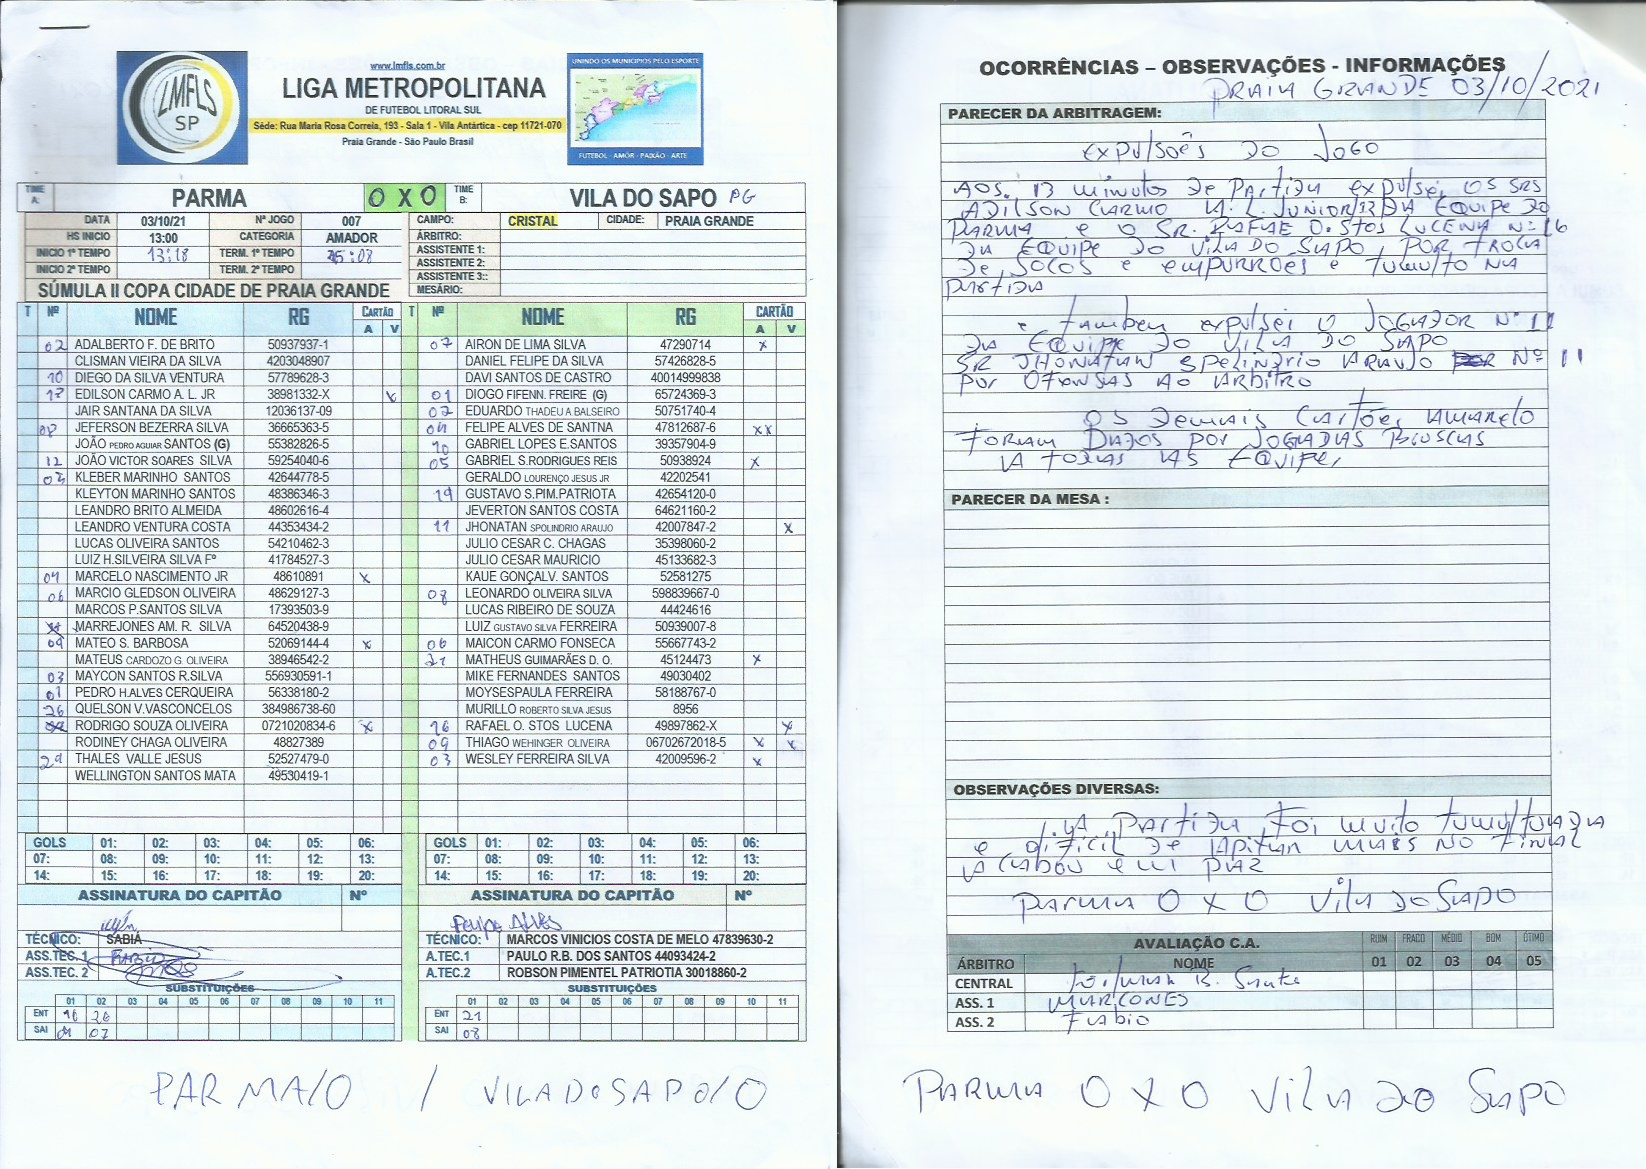 www.lmfls.com.br
LIGA METROPOLITANA
DE FUTEBOL LITORAL SUL
Séde: Rua Maria Rosa Correia, 193 - Sala 1 - Vila Antártica - cep 11721-070
Praia Grande - São Paulo Brasil
LMFLS
SP
UNINDO OS MUNICIPIOS PELO ESPORTE
FUTEBOL - AMÔR - PAIXÃO - ARTE
TIME A: PARMA 0 X 0 TIME B: VILA DO SAPO PG
DATA 03/10/21 Nª JOGO 007 CAMPO: CRISTAL CIDADE: PRAIA GRANDE
HS INICIO 13:00 CATEGORIA AMADOR ÁRBITRO:
INICIO 1º TEMPO 13:18 TERM. 1º TEMPO 15:08 ASSISTENTE 1:
INICIO 2º TEMPO TERM. 2º TEMPO ASSISTENTE 2:
ASSISTENTE 3::
SÚMULA II COPA CIDADE DE PRAIA GRANDE MESÁRIO:
T Nº NOME RG CARTÃO A V
02 ADALBERTO F. DE BRITO 50937937-1
CLISMAN VIEIRA DA SILVA 4203048907
10 DIEGO DA SILVA VENTURA 57789628-3
13 EDILSON CARMO A. L. JR 38981332-X V
JAIR SANTANA DA SILVA 12036137-09
08 JEFERSON BEZERRA SILVA 36665363-5
JOÃO PEDRO AGUIAR SANTOS (G) 55382826-5
12 JOÃO VICTOR SOARES SILVA 59254040-6
03 KLEBER MARINHO SANTOS 42644778-5
KLEYTON MARINHO SANTOS 48386346-3
LEANDRO BRITO ALMEIDA 48602616-4
LEANDRO VENTURA COSTA 44353434-2
LUCAS OLIVEIRA SANTOS 54210462-3
LUIZ H.SILVEIRA SILVA Fº 41784527-3
04 MARCELO NASCIMENTO JR 48610891 X
06 MARCIO GLEDSON OLIVEIRA 48629127-3
MARCOS P.SANTOS SILVA 17393503-9
MARREJONES AM. R. SILVA 64520438-9
09 MATEO S. BARBOSA 52069144-4 X
MATEUS CARDOZO G. OLIVEIRA 38946542-2
03 MAYCON SANTOS R.SILVA 556930591-1
01 PEDRO H.ALVES CERQUEIRA 56338180-2
26 QUELSON V.VASCONCELOS 384986738-60
RODRIGO SOUZA OLIVEIRA 0721020834-6 X
RODINEY CHAGA OLIVEIRA 48827389
29 THALES VALLE JESUS 52527479-0
WELLINGTON SANTOS MATA 49530419-1
T Nº NOME RG CARTÃO A V
07 AIRON DE LIMA SILVA 47290714 X
DANIEL FELIPE DA SILVA 57426828-5
DAVI SANTOS DE CASTRO 40014999838
01 DIOGO FIFENN. FREIRE (G) 65724369-3
02 EDUARDO THADEU A BALSEIRO 50751740-4
04 FELIPE ALVES DE SANTNA 47812687-6 XX
10 GABRIEL LOPES E.SANTOS 39357904-9
05 GABRIEL S.RODRIGUES REIS 50938924 X
GERALDO LOURENÇO JESUS JR 42202541
19 GUSTAVO S.PIM.PATRIOTA 42654120-0
JEVERTON SANTOS COSTA 64621160-2
11 JHONATAN SPOLINDRIO ARAUJO 42007847-2 X
JULIO CESAR C. CHAGAS 35398060-2
JULIO CESAR MAURICIO 45133682-3
KAUE GONÇALV. SANTOS 52581275
08 LEONARDO OLIVEIRA SILVA 598839667-0
LUCAS RIBEIRO DE SOUZA 44424616
LUIZ GUSTAVO SILVA FERREIRA 50939007-8
06 MAICON CARMO FONSECA 55667743-2
21 MATHEUS GUIMARÃES D. O. 45124473 X
MIKE FERNANDES SANTOS 49030402
MOYSESPAULA FERREIRA 58188767-0
MURILLO ROBERTO SILVA JESUS 8956
16 RAFAEL O. STOS LUCENA 49897862-X V
09 THIAGO WEHINGER OLIVEIRA 06702672018-5 X X
03 WESLEY FERREIRA SILVA 42009596-2 X
GOLS 01: 02: 03: 04: 05: 06:
07: 08: 09: 10: 11: 12: 13:
14: 15: 16: 17: 18: 19: 20:
GOLS 01: 02: 03: 04: 05: 06:
07: 08: 09: 10: 11: 12: 13:
14: 15: 16: 17: 18: 19: 20:
ASSINATURA DO CAPITÃO Nº
ASSINATURA DO CAPITÃO Nº
Felipe Alves
TÉCNICO: SABIÁ
ASS.TEC. 1
ASS.TEC. 2
TÉCNICO: MARCOS VINICIOS COSTA DE MELO 47839630-2
A.TEC.1 PAULO R.B. DOS SANTOS 44093424-2
A.TEC.2 ROBSON PIMENTEL PATRIOTIA 30018860-2
SUBSTITUIÇÕES
01 02 03 04 05 06 07 08 09 10 11
ENT 16 26
SAI 01 07
SUBSTITUIÇÕES
01 02 03 04 05 06 07 08 09 10 11
ENT 21
SAI 08
PARMA/0 / VILA DO SAPO/0
OCORRÊNCIAS – OBSERVAÇÕES - INFORMAÇÕES
PRAIA GRANDE 03/10/2021
PARECER DA ARBITRAGEM:
EXPULSÕES DO JOGO
AOS. 13 minutos de Partida expulsei OS SRS
ADILSON CARMO A. L. JUNIOR/13 DA EQUIPE DO
PARMA e o SR. RAFAE O. STOS LUCENA Nº 16
DA EQUIPE DO VILA DO SAPO, POR TROCA
De SOCOS e empurrões e tumulto NA
Partida
e também expulsei O JOGADOR Nº 11
DA EQUIPE DO VILA DO SAPO
SR JHONATAN SPELINDRIO ARAUJO Nº 11
POR OFENSAS AO ARBITRO
OS Demais Cartões AMARELO
FORAM DADOS POR JOGADAS BRUSCAS
A TODAS AS EQUIPE,
PARECER DA MESA :
OBSERVAÇÕES DIVERSAS:
A Partida foi muito tumultuada
e dificil de Apitar mais no Final
Acabou em PAZ
PARMA 0 X 0 VILA DO SAPO
AVALIAÇÃO C.A. RUIM FRACO MÉDIO BOM ÓTIMO
ÁRBITRO NOME 01 02 03 04 05
CENTRAL
ASS. 1 MARCONES
ASS. 2 FABIO
PARMA 0 X 0 VILA DO SAPO